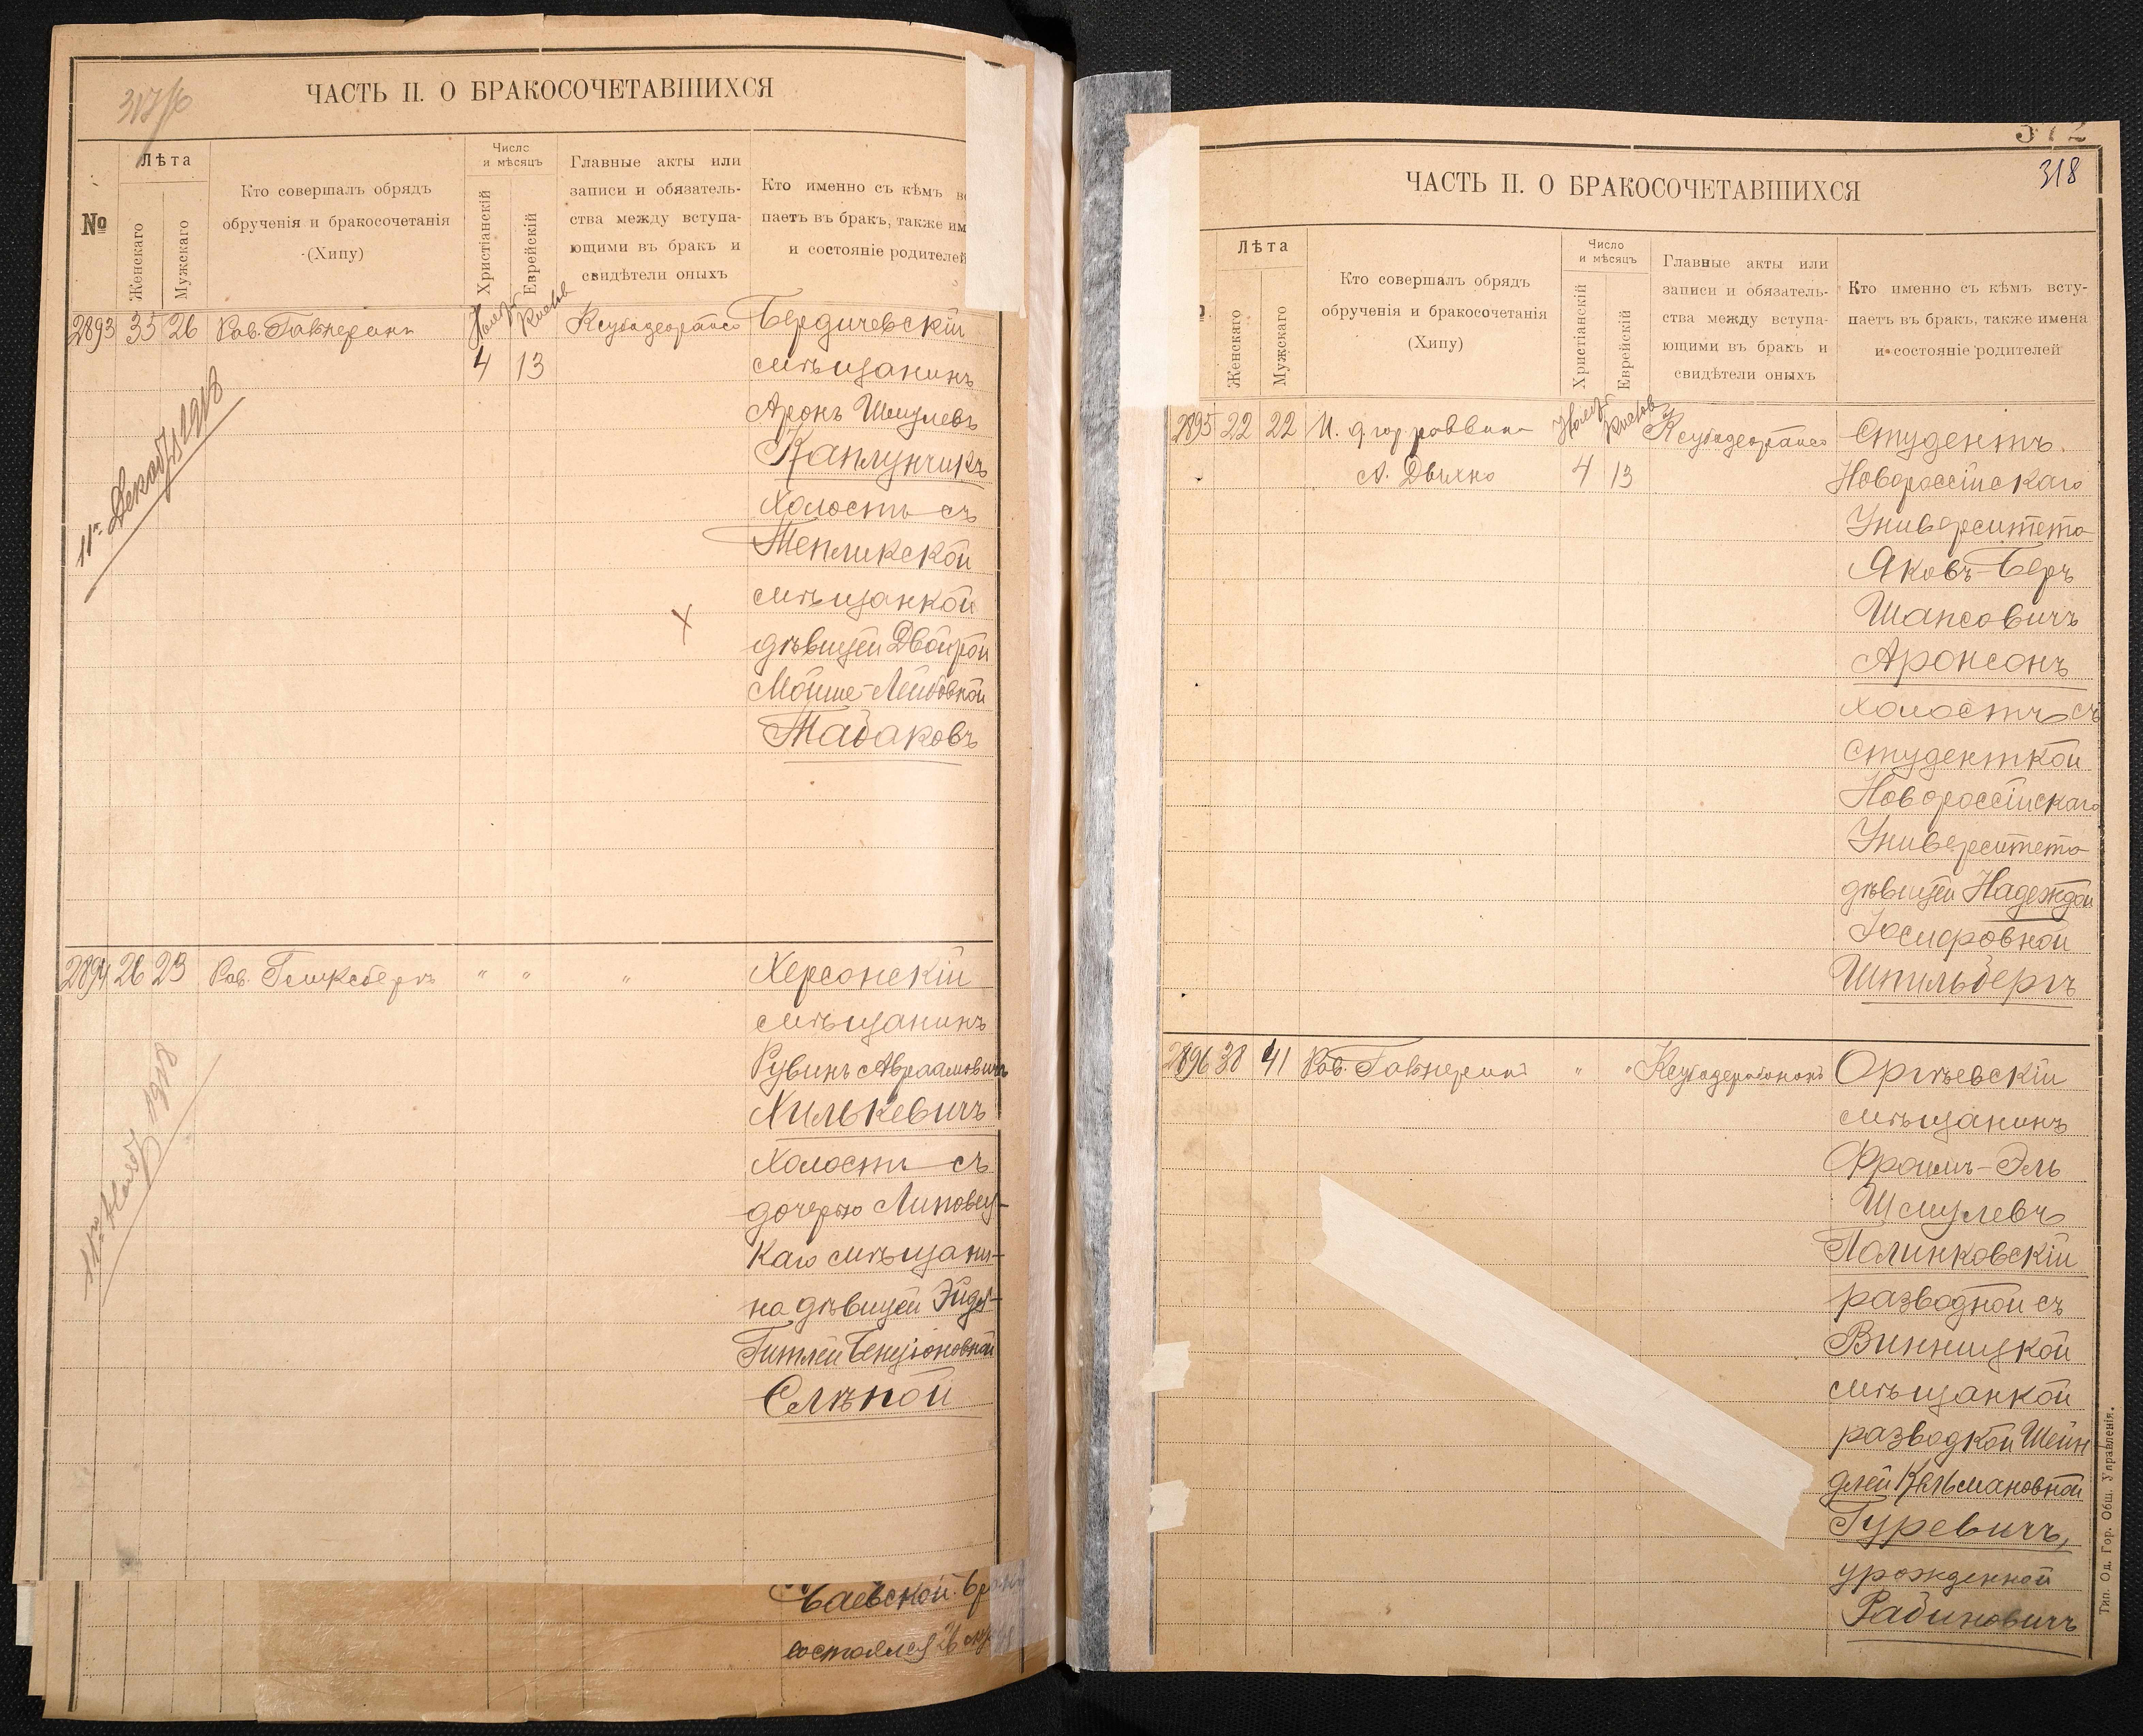 317/б
ЧАСТЬ II. О БРАКОСОЧЕТАВШИХСЯ
№
Лѣта
Женскаго
Мужскаго
Кто совершалъ обрядъ
обрученія и бракосочетанія
(Хипу)
Число
и мѣсяцъ
Христіанскій
Еврейскій
Главные акты или
записи и обязатель-
ства между вступа-
ющими въ бракъ и
свидѣтели оныхъ
Кто именно съ кѣмъ
паетъ въ бракъ, также
и состояніе родителей
2893 35 26 Рав.
4 13
Бердичевскій
мѣщанинъ
Аронъ Шмулевъ
Каплунчикъ
холостъ съ
Тепликской
мѣщанкой
дѣвицей Двойрой
Мойше-Лейбовной
Табаковъ
11го Декабря 1918
2894 26 29 Рав. Гликсбергъ " " "
Херсонскій
мѣщанинъ
Рувинъ Авраамовичъ
Хилькевичъ
Холостъ съ
дочерью Липовец-
каго мѣщани-
на дѣвицей Эйдел-
Гитлей Бенціоновной
Слѣпой
1918
баевской.
состоялся 26
318
ЧАСТЬ II. О БРАКОСОЧЕТАВШИХСЯ
Лѣта
Женскаго
Мужскаго
Кто совершалъ обрядъ
обрученія и бракосочетанія
(Хипу)
Число
и мѣсяцъ
Христіанскій
Еврейскій
Главные акты или
записи и обязатель-
ства между вступа-
ющими въ бракъ и
свидѣтели оныхъ
Кто именно съ кѣмъ всту-
паетъ въ бракъ, также имена
и состояніе родителей
2895 22 22 И. д. гор. раввина
4 13
Студентъ
Новороссійскаго
Университета
Яковъ-Беръ
Шапсовичъ
Аронсонъ
холостъ съ
студенткой
Новороссійскаго
Университета
дѣвицей Надеждой
Іосифовной
Шпильбергъ
2896 38 41 Рав. " "
Оргѣевскій
мѣщанинъ
Фроимъ-Эль
Шмулевъ
Полинковскій
разводной съ
Винницкой
мѣщанкой
разводкой Шейн
длей Кельмановной
Гуревичъ,
урожденной
Рабиновичъ
Тип. Од. Гор. Общ. Управленія.